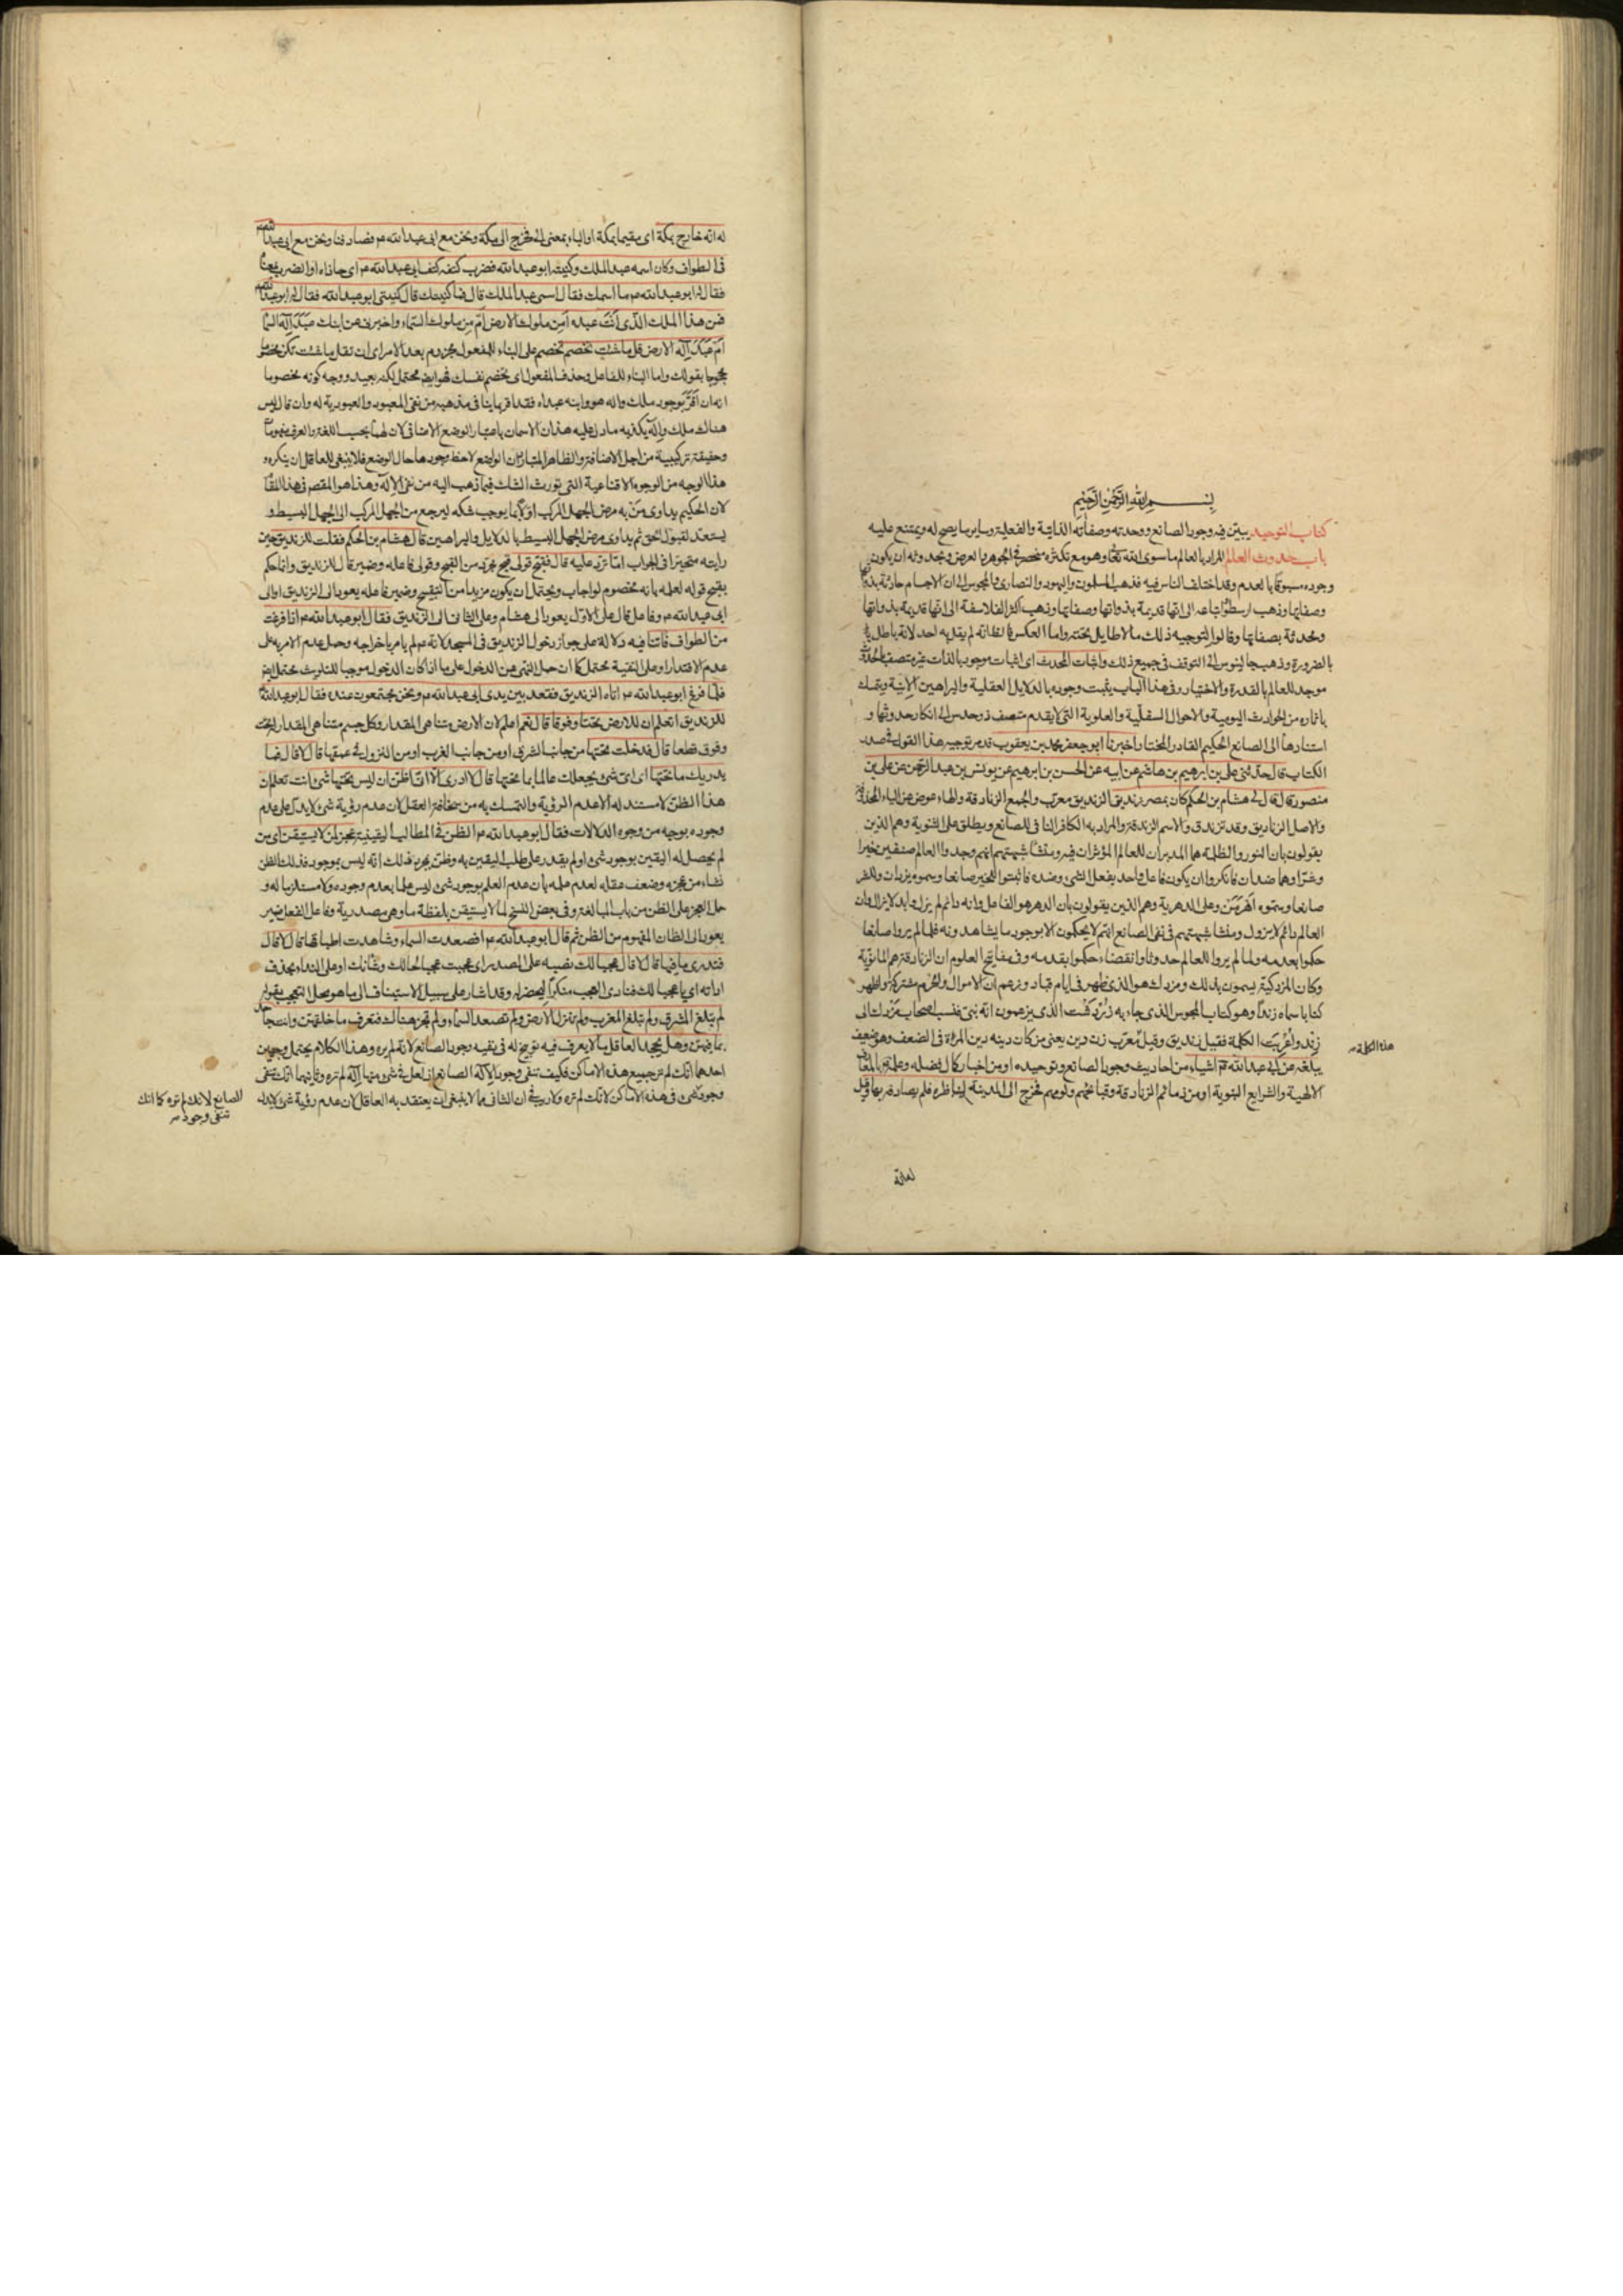 بسم الله الرحمن الرحيم
كتاب التوحيد يبين فيه وجود الصانع ووحدته وصفاته الذاتية والفعلية وساير ما يصح له ويمتنع عليه
باب حدوث العالم المراد بالعالم ما سوى الله تعالى وهو مع تكثره منحصر في الجوهر والعرض وبحدوثه ان يكون
وجوده مسبوقا بالعدم وقد اختلف الناس فيه فذهب المسلمون واليهود والنصارى والمجوس الى ان الاجسام حادثة بذواتها
وصفاتها وذهب ارسطو واتباعه الى انها قديمة بذواتها وصفاتها وذهب اكثر الفلاسفة الى انها قديمة بذواتها
ومحدثة بصفاتها وقالوا لتوجيه ذلك ما لا طايل تحته واما العكس فالظاهر انه لم يقل به احد لانه باطل
بالضرورة وذهب جالينوس الى التوقف في جميع ذلك واثبات المحدث اى اثبات موجود بالذات غير متصف بالحدوث
موجد للعالم بالقدرة والاختيار وفي هذا الباب يثبت وجوده بالدلايل العقلية والبراهين الانية ويتمسك
باثاره من الحوادث اليومية والاحوال السفلية والعلوية التى لا يقدم متصف ذو حدس الى انكار حدوثها و
استنادها الى الصانع الحكيم القادر المختار اخبرنا ابو جعفر محمد بن يعقوب قد مر توجيه هذا القول في صدر
الكتاب قال حدثنى على بن ابرهيم بن هاشم عن ابيه عن الحسن بن ابرهيم عن يونس بن عبد الرحمن عن على بن
منصور قال قال لى هشام بن الحكم كان بمصر زنديق الزنديق معرب والجمع الزنادقة والهاء عوض عن الياء المحذوفة
والاصل الزناديق وقد تزندق والاسم الزندقة والمراد به الكافر النافى للصانع ويطلق على الثنوية وهم الذين
يقولون بان النور والظلمة هما المدبران للعالم المؤثران فيه ومنشأ شبهتهم انهم وجدوا العالم صنفين خيرا
وشرا وهما ضدان فانكروا ان يكون فاعل واحد يفعل الشئ وضده فاثبتوا للخير صانعا وسموه يزدان وللشر
صانعا وسموه اهرمن وعلى الدهرية وهم الذين يقولون بان الدهر هو الفاعل وانه دائم لم يزل وابد لا يزال وان
العالم دائم لا يزول ومنشأ شبهتهم في نفى الصانع انهم لا يحكمون الا بوجود ما يشاهدونه فلما لم يروا صانعا
حكموا بعدمه ولما لم يروا للعالم حدوثا وانقضاء حكموا بقدمه وفي مفاتيح العلوم ان الزنادقة هم المانوية
وكان المزدكية يسمون بذلك ومزدك هو الذى ظهر في ايام قباد وزعم ان الاموال والحرم مشتركة واظهر
كتابا سماه زندا وهو كتاب المجوس الذى جاء به زردشت الذى يزعمون انه نبى فنسب اصحاب مزدك الى
زند واعربت الكلمة فقيل زنديق وقيل معرب زن دين يعنى من كان دينه دين المراة في الضعف وهو ضعيف
هذه الكلمة
يبلغه عن ابى عبد الله ع اشياء من احاديث وجود الصانع وتوحيده او من اخبار كمال فضله وعلمه بالمعارف
الالهية والشرايع النبوية او من ذمائم الزنادقة وقبائحهم ولومهم فخرج الى المدينة ليناظره فلم يصادفه بها وقيل
له انه
له انه خارج بمكة اى مقيما بمكة او الباء بمعنى الى فخرج الى مكة ونحن مع ابى عبد الله ع فصادفنا ونحن مع ابى عبد الله ع
في الطواف وكان اسمه عبد الملك وكنيته ابو عبد الله فضرب كتفه كتف ابى عبد الله ع اى حاذاه او الضرب بمعناه
فقال له ابو عبد الله ع ما اسمك فقال اسمى عبد الملك قال فما كنيتك قال كنيتى ابو عبد الله فقال له ابو عبد الله ع
فمن هذا الملك الذى انت عبده امن ملوك الارض ام من ملوك السماء واخبرنى عن ابنك عبد اله السماء
ام عبد اله الارض قل ما شئت تخصم تخصم على البناء للمفعول مجزوم بعد الامر اى ان تقل ما شئت تكن مخصوما
محجوجا بقولك واما البناء للفاعل وحذف المفعول اى تخصم نفسك فهو ايضا محتمل لكنه بعيد ووجه كونه مخصوما
انه ان اقر بوجود ملك واله هو وابنه عبداه فقد اقر بما ينافى مذهبه من نفى المعبود والعبودية له وان قال ليس
هناك ملك واله يكذبه ما دل عليه هذان الاسمان باعتبار الوضع الاضافى لان لهما بحسب اللغة والعرف مفهوما
وحقيقة تركيبية من اجل الاضافة والظاهر المتبادر ان الواضع لاحظ وجودها حال الوضع فلا ينبغى للعاقل ان ينكره و
هذا الوجه من الوجوه الاقناعية التى تورث الشك فيما ذهب اليه من نفى الاله وهذا هو المقصود في هذا المقام
لان الحكيم يداوى من به مرض الجهل المركب اولا بما يوجب شكه ليرجع من الجهل المركب الى الجهل البسيط و
يستعد لقبول الحق ثم يداوى مرض الجهل البسيط بالدلايل والبراهين قال هشام بن الحكم فقلت للزنديق حين
رايته متحيرا في الجواب اما ترد عليه قال فقبح قولى قبح مجرد من القبح وقولى فاعله وضمير قال للزنديق وانما حكم
بقبح قوله لعلمه بانه مخصوم لو اجاب ويحتمل ان يكون مزيدا من التقبيح وضمير فاعله يعود الى الزنديق او الى
ابى عبد الله ع وفاعل قال على الاول يعود الى هشام وعلى الثانى الى الزنديق فقال ابو عبد الله ع اذا فرغت
من الطواف فاتنا فيه دلالة على جواز دخول الزنديق في المسجد لانه ع لم يامر باخراجه وحمل عدم الامر به على
عدم الاقتدار او على التقية محتمل كما ان حمل النهى عن الدخول على ما اذا كان الدخول موجبا للتلويث محتمل ايضا
فلما فرغ ابو عبد الله ع اتاه الزنديق فقعد بين يدى ابى عبد الله ع ونحن مجتمعون عنده فقال ابو عبد الله ع
للزنديق اتعلم ان للارض تحتا وفوقا قال نعم اعلم لان الارض متناهى المقدار وكل جسم متناهى المقدار له تحت
وفوق قطعا قال فدخلت تحتها من جانب الشرق او من جانب الغرب او من النزول في عمقها قال لا قال فما
يدريك ما تحتها اى اى شئ يجعلك عالما بما تحتها قال لا ادرى الا انى اظن ان ليس تحتها شئ انت تعلم ان
هذا الظن لا مستند له الا عدم الرؤية والتمسك به من سخافة العقل لان عدم رؤية شئ لا يدل على عدم
وجوده بوجه من وجوه الدلالات فقال ابو عبد الله ع الظن في المطالب اليقينية عجز لمن لا يستيقن اى من
لم يحصل له اليقين بوجود شئ او لم يقدر على طلب اليقين به وظن بمجرد ذلك انه ليس بموجود فذلك الظن
نشاء من عجزه وضعف عقله لعدم علمه بان عدم العلم بوجود شئ ليس علما بعدم وجوده ولا مستلزما له و
حمل العجز على الظن من باب المبالغة وفي بعض النسخ لما لا يستيقن بلفظة ما وهى مصدرية وفاعل الفعل ضمير
يعود الى الظان المفهوم من الظن ثم قال ابو عبد الله ع افصعدت السماء وشاهدت اطباقها قال لا قال
فتدرى ما فيها قال لا قال عجبا لك نصبه على المصدر اى عجبت عجبا لحالك وشانك او على النداء بحذف
اداته اى يا عجبا لك فنادى العجب منكرا ليحضره وقد اشار على سبيل الاستيناف الى ما هو محل التعجب بقوله
لم تبلغ المشرق ولم تبلغ المغرب ولم تنزل الارض ولم تصعد السماء ولم تجز هناك فتعرف ما خلفهن وانت جاحد
بما فيهن وهل يجحد العاقل ما لا يعرف فيه توبيخ له في نفيه وجود الصانع لانه لم يره وهذا الكلام يحتمل وجهين
احدهما انك لم تر جميع هذه الاماكن فكيف تنفى وجود الاله الصانع اذ لعل في شئ منها اله لم تره وثانيهما انك تنفى
الصانع لانك لم تره كما انك
تنفى وجود
وجود شئ في هذه الاماكن لانك لم تره ولا ريب في ان الثانى مما لا ينبغى ان يعتقد به العاقل لان عدم رؤية شئ لا يدل